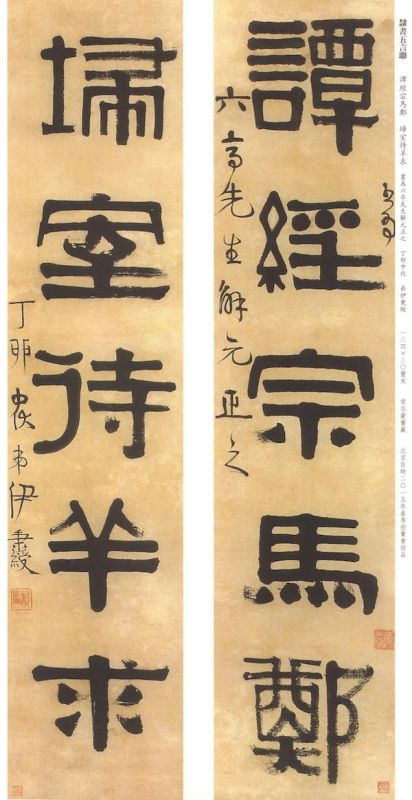 隸書五言聯　譚經宗馬鄭　埽室待羊求　書為六亭先生解元正之　丁卯中伏　弟伊秉綬　一三四×三〇釐米　常宗豪舊藏　北京匡時二〇一五年春季拍賣會拍品
書為
譚經宗馬鄭
六亭先生解元正之
埽室待羊求
丁卯中伏弟伊秉綬